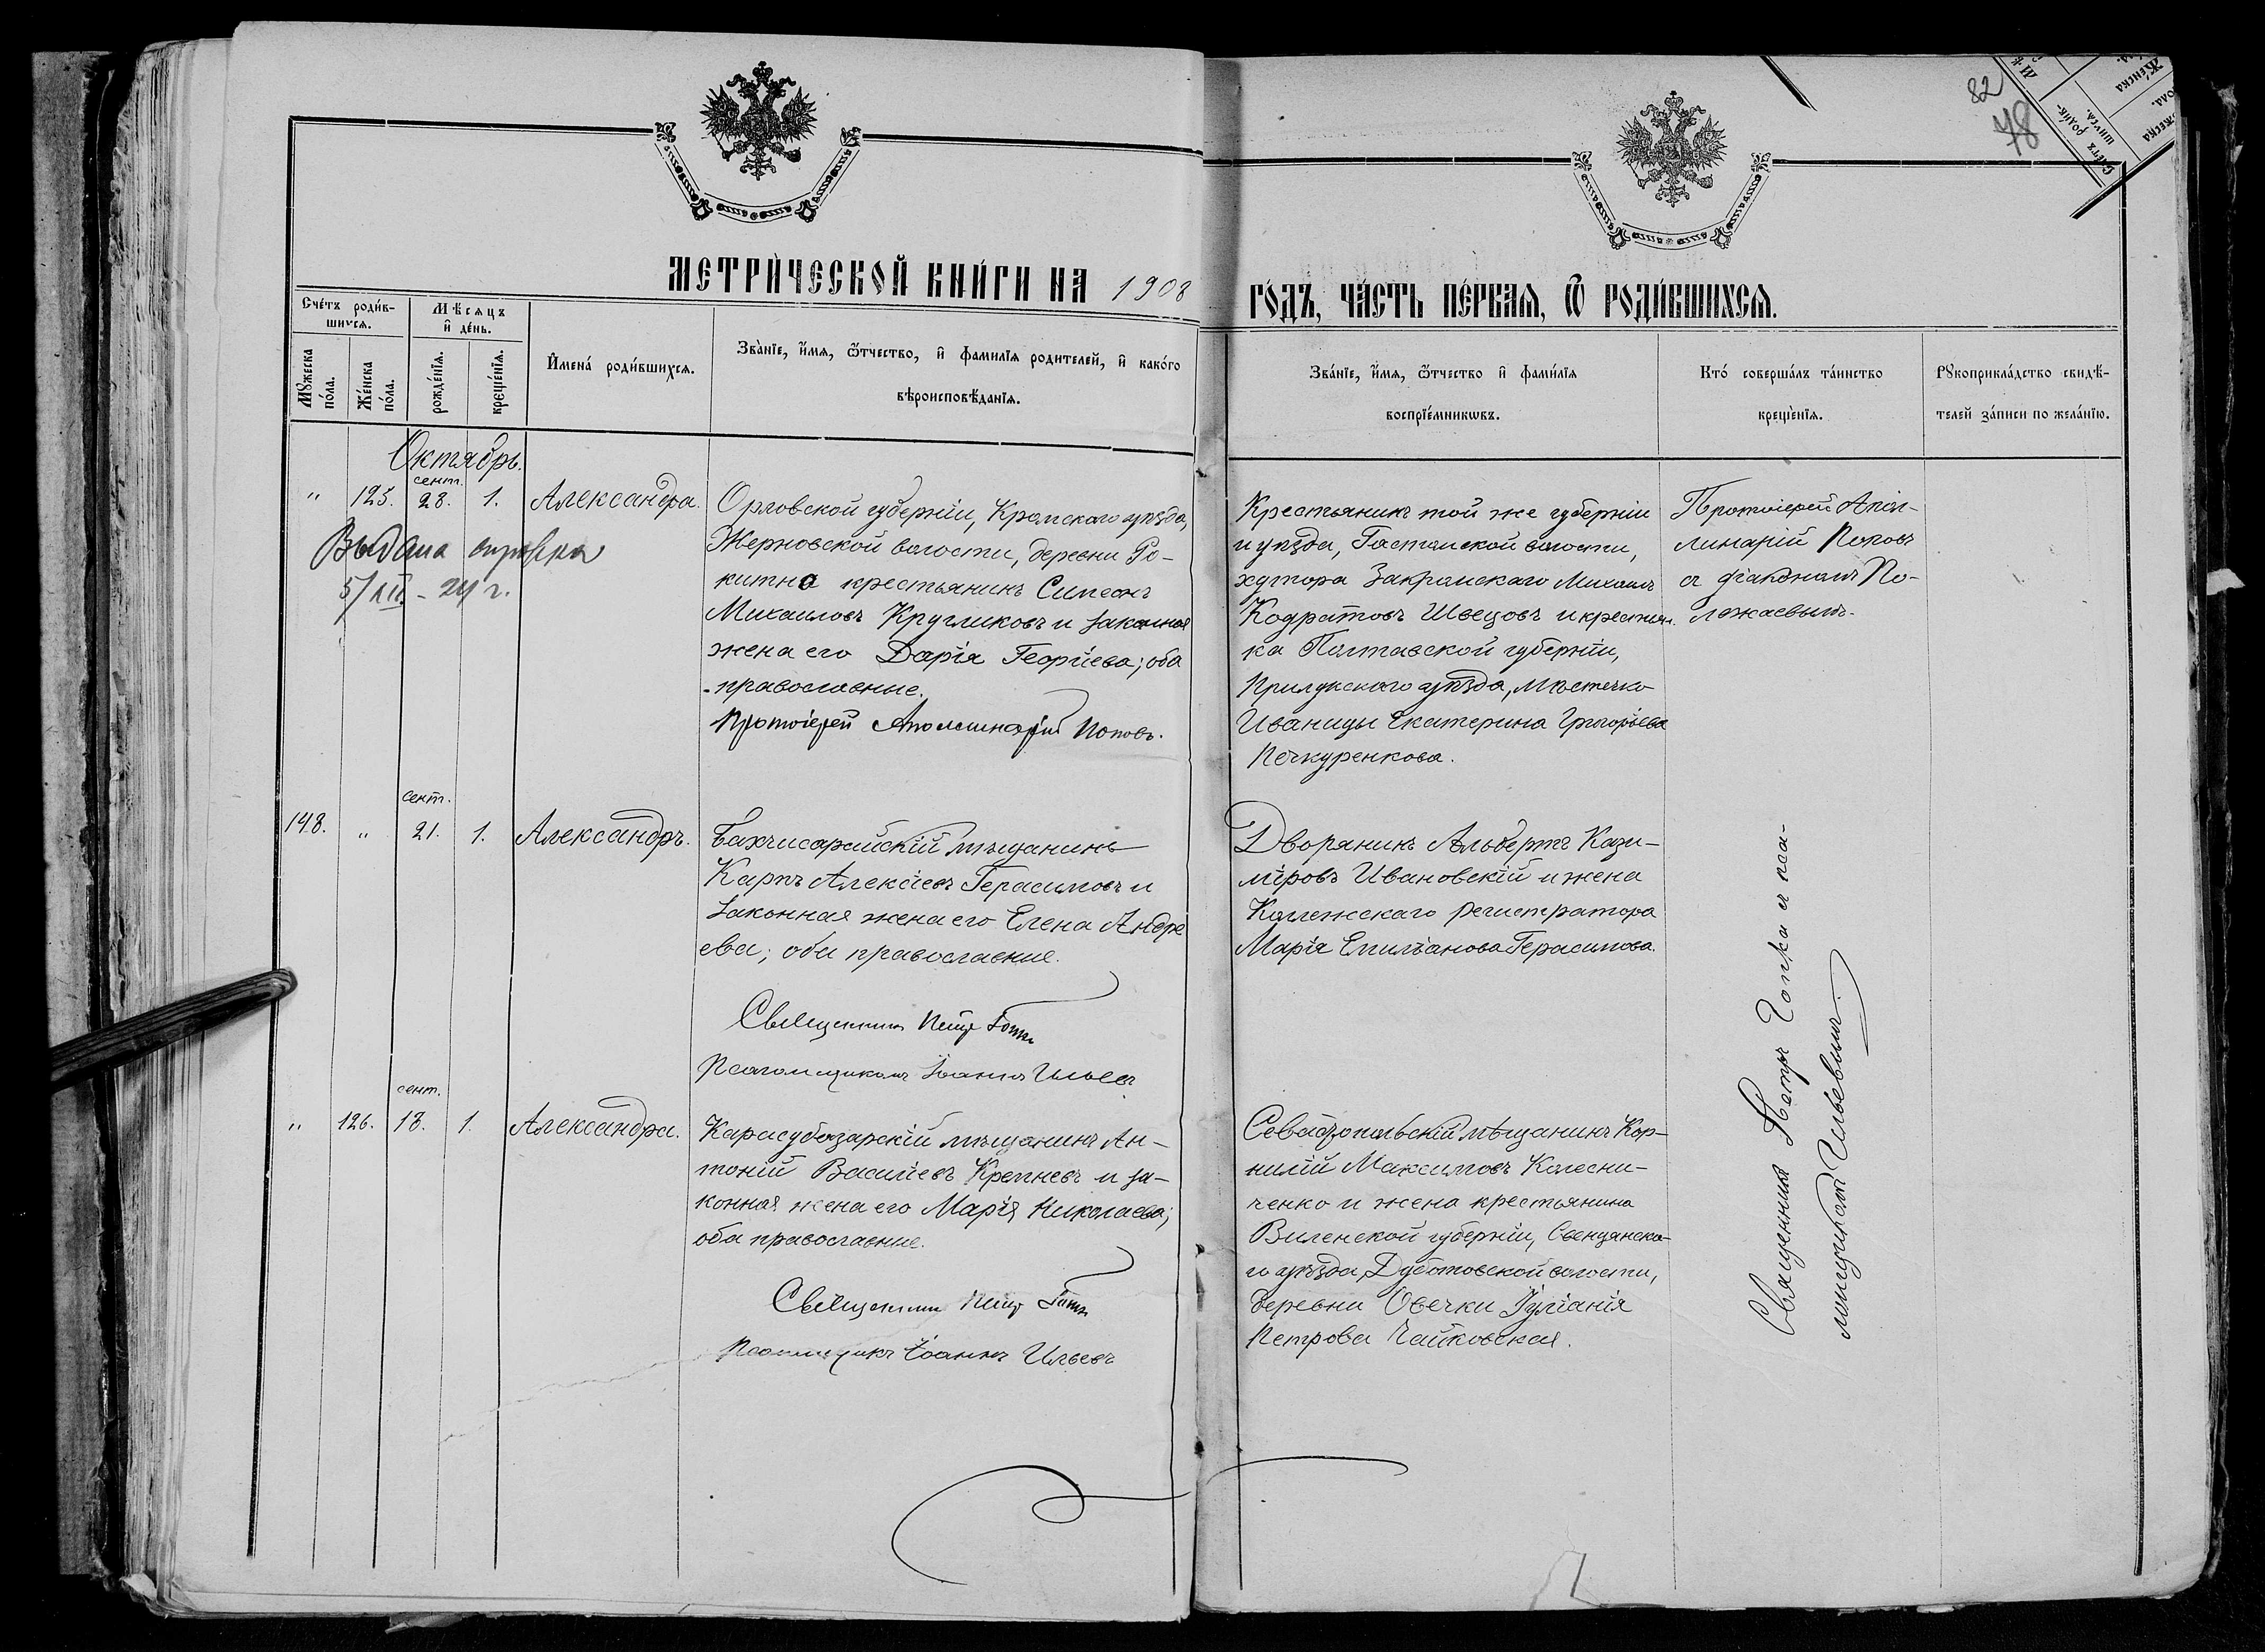 82
78
МЕТРИЧЕСКОЙ КНИГИ НА 1908
ГОДЪ, ЧАСТЬ ПЕРВАЯ, Ѿ РОДИВШИХСЯ.
Счетъ родив-
шихся.
Мѣсяцъ
и день.
Мужеска
пола.
Женска
пола.
рожденія.
крещенія.
Имена родившихся.
Званіе, имя, ѿтчество, и фамилія родителей, и какого
вѣроисповѣданія.
Званіе, имя, ѿтчество и фамилія
воспріемниковъ.
Кто совершалъ таинство
крещенія.
Рукоприкладство свидѣ-
телей записи по желанію.
Октябрь.
сент.
" 125. 28. 1. Александра.
Выдана справка
5/III - 24 г.
Орловской губерніи, Кромскаго уѣзда,
Жерновской волости, деревни Ро-
китна крестьянинъ Симеонъ
Михаиловъ Кругликовъ и законная
жена его Дарія Георгіева; оба
православные.
Протоіерей Аполлинарій Поповъ.
Крестьянинъ той же губерніи
и уѣзда, Гостомской волости,
хутора Закромскаго Михаилъ
Кодратовъ Швецовъ и крестьян.
ка Полтавской губерніи,
Прилукскаго уѣзда, мѣстечко
Иваницы Екатерина Григорьева
Печкуренкова.
Протоіерей Апол-
линарій Поповъ
съ діакономъ По-
ложаевымъ.
сент.
148. " 21. 1. Александръ.
Бахчисарайскій мѣщанинъ
Карпъ Алексіевъ Герасимовъ и
законная жена его Елена Андре
ева; оба православные.
Священникъ Петръ
Псаломщикъ Іоаннъ Ильевъ
Дворянинъ Альбертъ Кази-
міровъ Ивановскій и жена
Коллежскаго регистратора
Марія Емиліанова Герасимова.
Священникъ Петръ съ пса-
ломщикомъ Ильевымъ.
сент.
" 126. 13. 1. Александра.
Карасубазарскій мѣщанинъ Ан-
тоній Василіевъ Кремневъ и за-
конная жена его Марія Николаева;
оба православные.
Священникъ Петръ
Псаломщикъ Іоаннъ Ильевъ
Севастопольскій мѣщанинъ Кор-
нилій Максимовъ Колесни-
ченко и жена крестьянина
Виленской губерніи, Свенцянска-
го уѣзда, Дуботовской волости,
деревни Овечки Іуліанія
Петрова Чайковская.